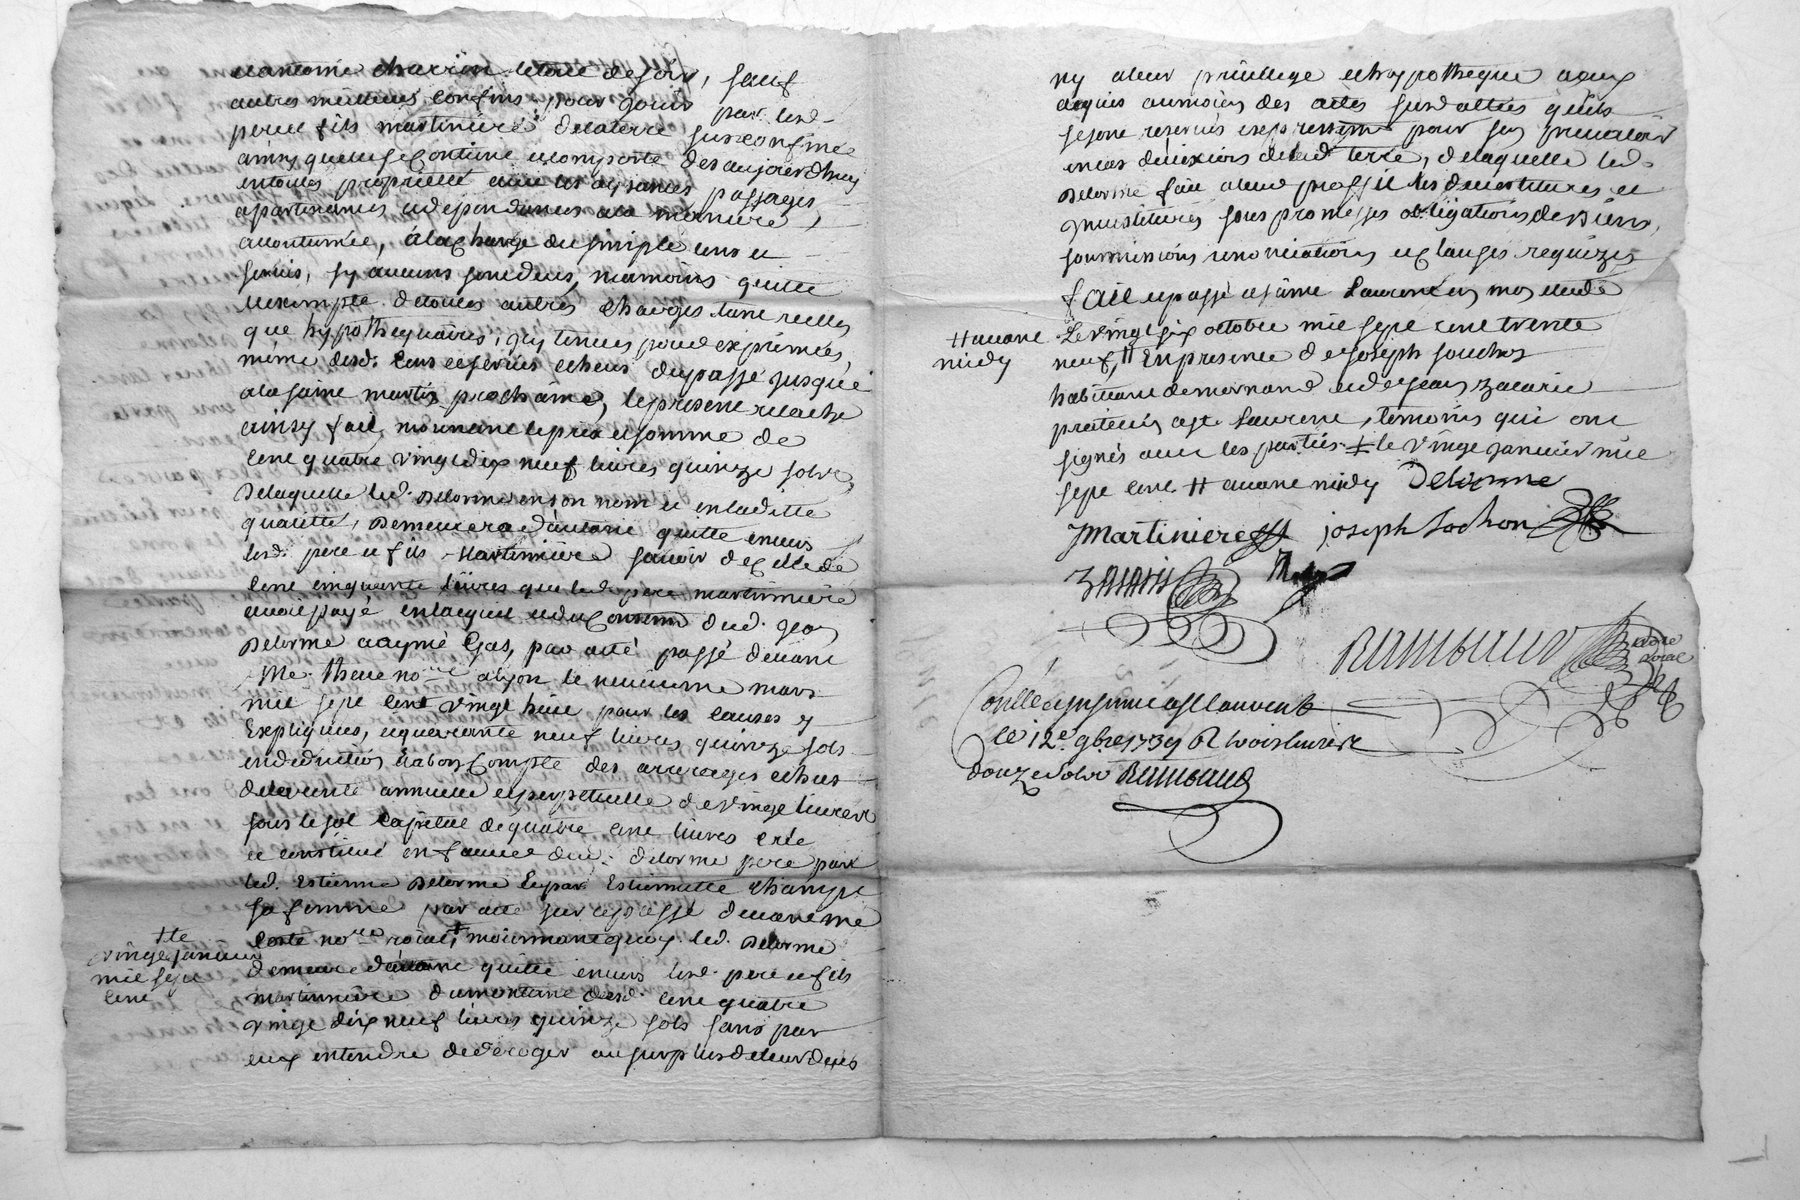 charrin de soir, sauf
autres meilleurs confins pour jouir par lesd.
pere et fils martiniere de la terre sus confinée
ainsy quelle se contient et comporte des aujourdhuy
en toutes proprieté avec les aysances passages,
apartenances et dependances a la maniere
accoutumée, a la charge du simple cens et
servis, sy aucuns sont deus, neamoins quitte
et exempte de toutes autres charges tant reelles
que hypothequaires, exprimées,
même desd. cens et servis echeus du passé jusque a
a la saint martin prochaine, le present relache
ainsy fait moienant le prix et somme de
cent quatre vingt dix neuf livres quinze sols
de laquelle led. Delorme en son nom et en laditte
qualitté, demeurera d'autant quitte envers
lesd. pere et fils Martiniere savoir de celle de
cent cinquante livres que led. pere martiniere
auroit payé en lacquit et du consent. dud. Jean
Delorme a aymé Gas, par acte passé devant
Me. no.re a lyon le neuvieme mars
mil sept cent vingt huit pour les causes y
expliquées, et quarante neuf livres quinze sols
en deduction et a bon compte des arrerages echus
de la rente annuelle et perpetuelle de vingt livres
sous le sol capital de quatre cent livres crée
et constitué en faveur dud. delorme pere par
led. Estienne Delorme et par Estiennette
sa femme par acte sur ce passé devant me
no.re roial ‡ moienant quoy led. Delorme
demeure d'autant quitte envers lesd. pere et fils
martiniere du montant desd. cent quatre
vingt dix neuf livres quinze sols sans par
eux entendre deroger au surplus de leur deub
‡ le
vingt janvier
mil sept
cent
ny a leur privilege et hypotheque a eux
acquis au moien des actes susd. qu'ils
se sont reservés expressem. pour sen prevaloir
en cas d'eviction de lad. terre, de laquelle led.
Delorme fait a leur proffit les devestitures et
investitures sous promesses obligations de biens,
soumissions renonciations et clauses requizes
fait et passé a saint Laurent en mon etude
Le vingt six octobre mil sept cent trente
neuf, H En presence de Joseph souchon
habittant de mornand et de Jean zacarie
praticien a st. Laurent, temoins qui ont
signés avec les parties. ‡ le vingt janvier mil
sept cent. H avant midy Delorme
H avant
midy
Martiniere joseph Sochon
zacarie
Rambaud no.re
roial
Contllé et insinué a st Laurent
le 12e. 9bre 1739 R trois livres
douze sols Rambaud